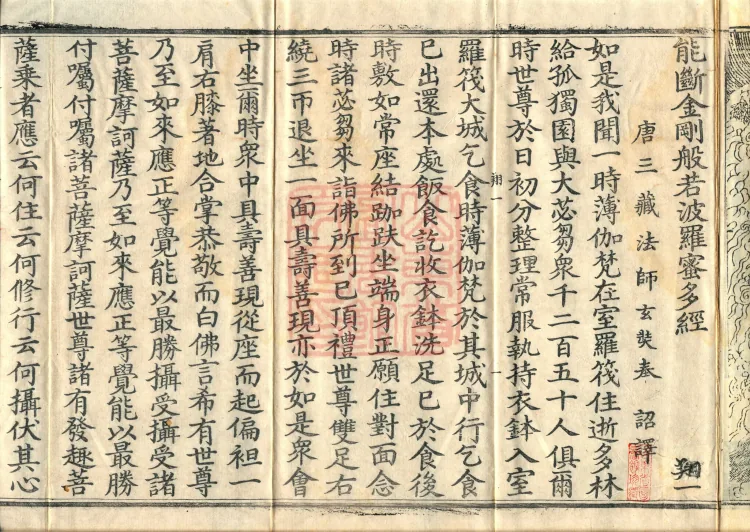 能斷金剛般若波羅蜜多經 翔一
唐三藏法師玄奘奉 詔譯
如是我聞一時薄伽梵在室羅筏住逝多林
給孤獨園與大苾芻衆千二百五十人俱爾
時世尊於日初分整理常服執持衣鉢入室
翔一
羅筏大城乞食時薄伽梵於其城中行乞食
已出還本處飯食訖收衣鉢洗足已於食後
時敷如常座結跏趺坐端身正願住對面念
時諸苾芻來詣佛所到已頂禮世尊雙足右
繞三帀退坐一面具壽善現亦於如是衆會
中坐爾時衆中具壽善現從座而起偏袒一
肩右膝著地合掌恭敬而白佛言希有世尊
乃至如來應正等覺能以最勝攝受攝受諸
菩薩摩訶薩乃至如來應正等覺能以最勝
付囑付囑諸菩薩摩訶薩世尊諸有發趣菩
薩乘者應云何住云何修行云何攝伏其心